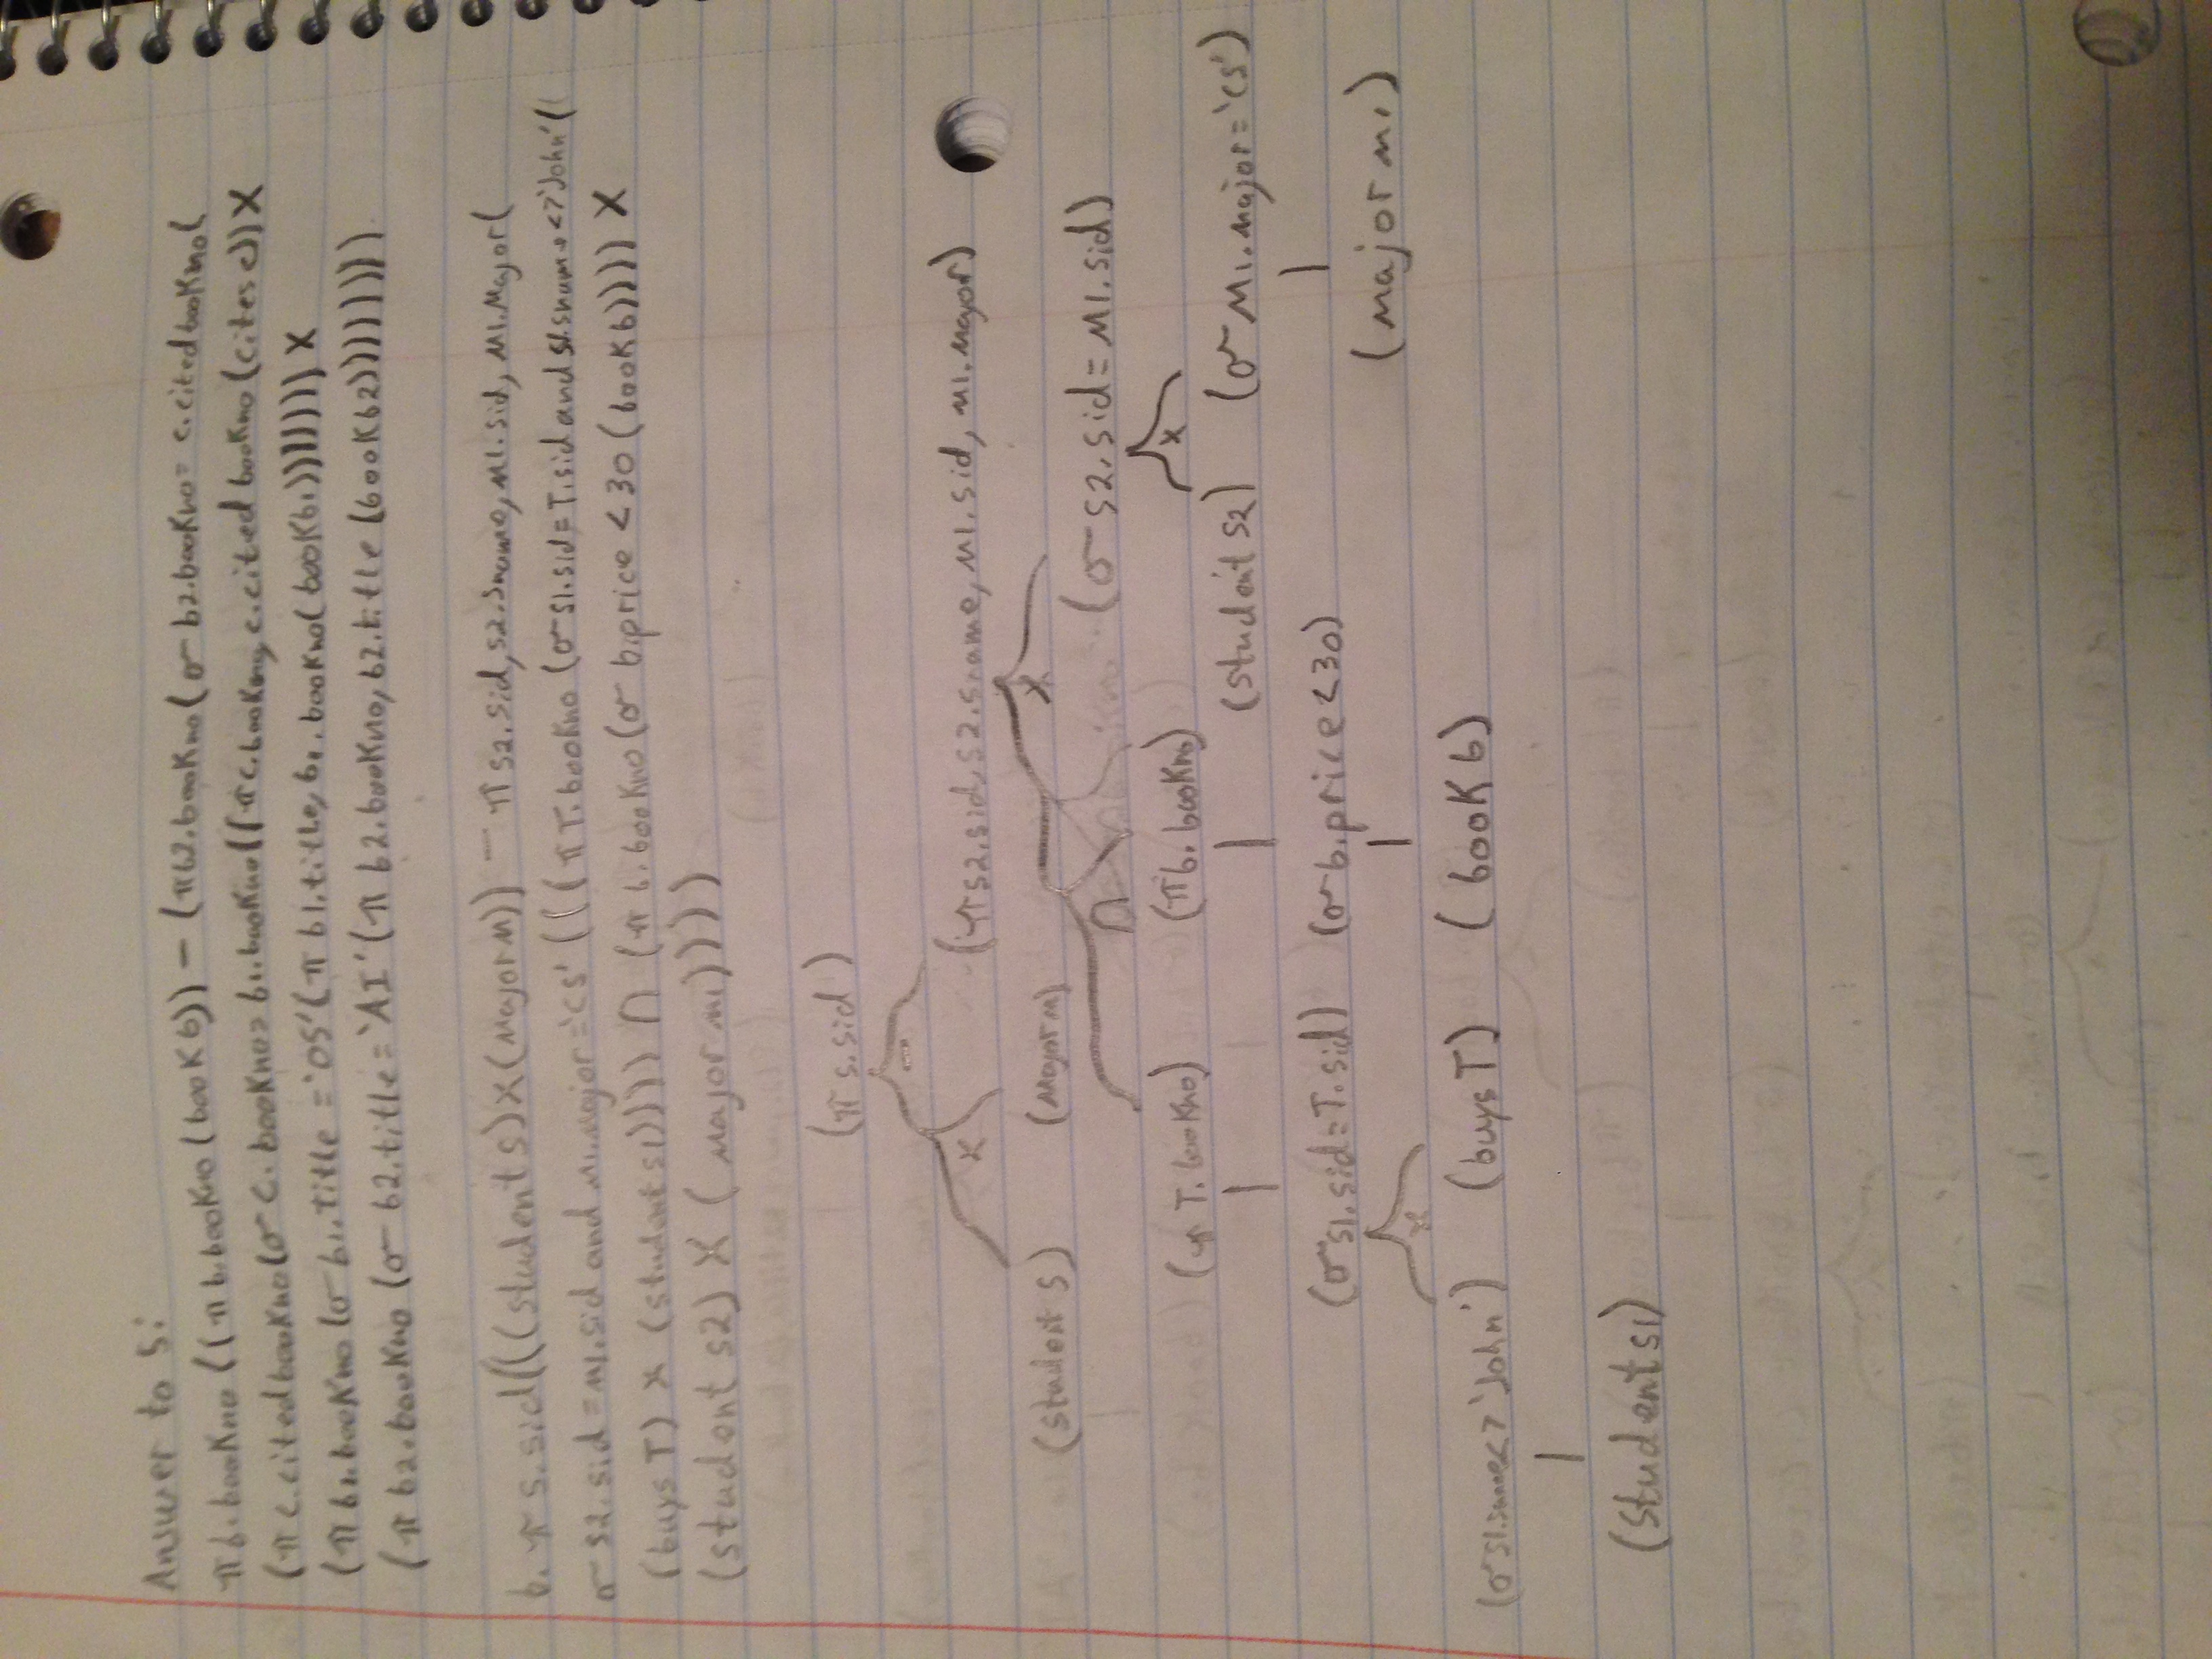 Answer to 5:
π b.bookno ((π b.bookno (book b)) − (π b2.bookno (σ b2.bookno = c.citedbookno(
(π c.citedbookno (σ c.bookno= b1.bookno ((π c.bookno, c.citedbookno (cites c)) X
(π b1.bookno (σ b1.title = 'OS' (π b1.title, b1.bookno( book b1)))))))) X
(π b2.bookno (σ b2.title = 'AI' (π b2.bookno, b2.title (book b2))))))))
6. π s.sid(((student s) x (Major M)) − π s2.sid, s2.sname, M1.sid, M1.Major(
σ s2.sid = M1.sid and M1.major = 'CS' (((π T.bookno (σ s1.sid = T.sid and s1.sname <> 'John' ((
(buys T) x (student s1)))) ∩ (π b.bookno (σ b.price < 30 (book b)))) X
(student s2) X ( Major m1))))
(π s.sid )
−
x
(π s2.sid, s2.sname, M1.sid, M1.Major)
(student s) (Major M)
x
∩ (σ s2.sid = M1.sid)
(π T.bookno) (π b.bookno) x
(student s2) (σ M1.major = 'CS')
(σ s1.sid = T.sid) (σ b.price < 30)
x (major m1)
(σ s1.sname <> 'John') (buys T) (book b)
(student s1)